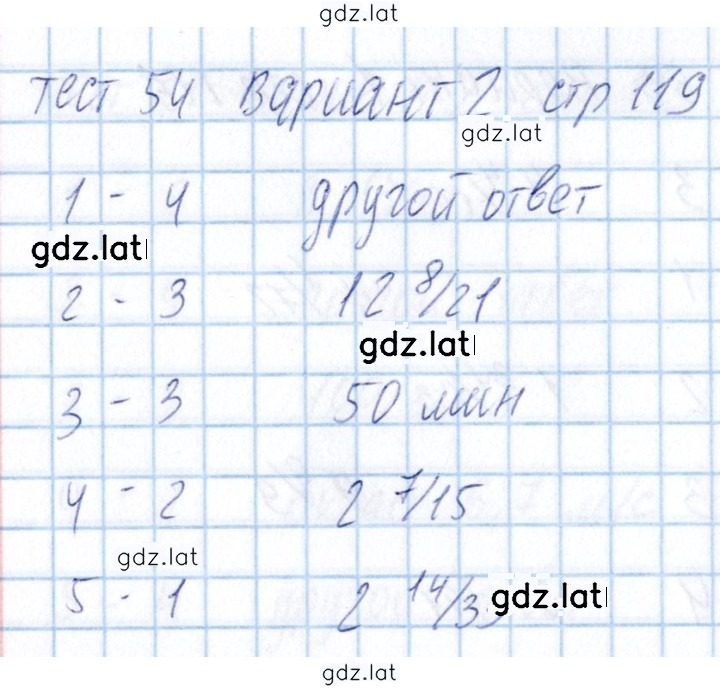 gdz.lat
тест 54 вариант 2 стр 119
gdz.lat
1 - 4 другой ответ
gdz.lat
2 - 3 12 8/21
gdz.lat
3 - 3 50 мин
4 - 2 2 7/15
gdz.lat
5 - 1 2 14/
gdz.lat
gdz.lat